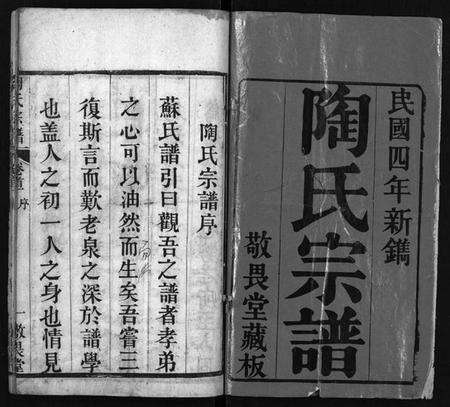 民國四年新鐫
陶氏宗譜
敬畏堂藏板
陶氏宗譜序
蘇氏譜引曰觀吾之譜者孝弟
之心可以油然而生矣吾嘗三
復斯言而歎老泉之深於譜學
也蓋人之初一人之身也情見
陶氏宗譜 卷首 序
一 敬畏堂